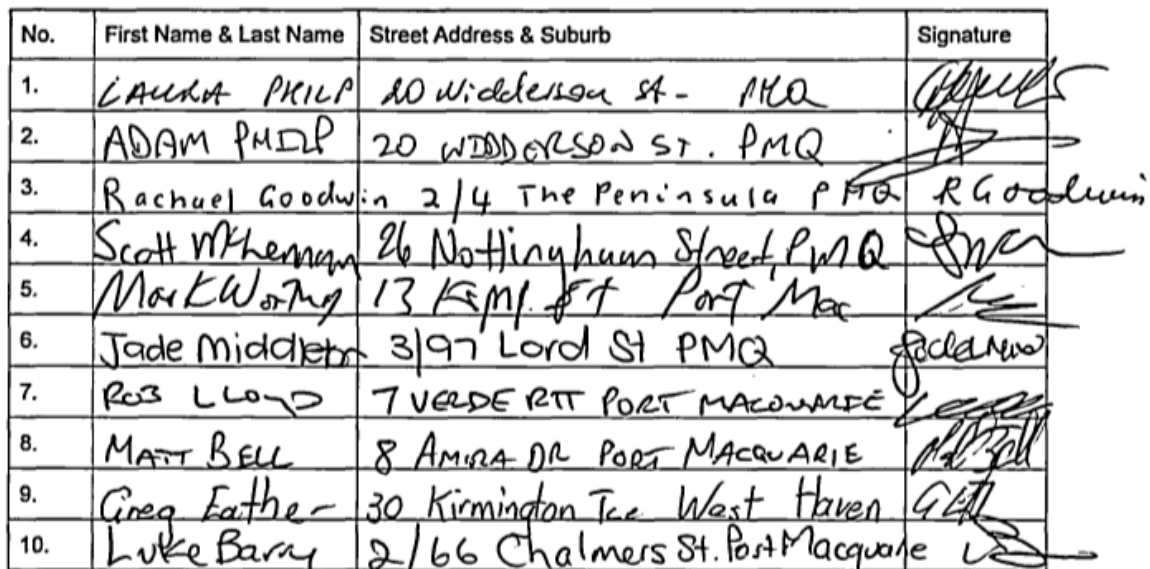 No. First Name & Last Name Street Address & Suburb Signature
1. LAURA PHILP 20 Widderson St - PMQ
2. ADAM PHILP 20 WIDDERSON ST. PMQ
3. Rachael Goodwin 2/4 The Peninsula PMQ R Goodwin
4. Scott 26 Nottingham Street, PMQ
5. Mark Worthy 13 St Port Mac
6. Jade Middleton 3/97 Lord St PMQ
7. ROB LLOYD 7 VERDE PORT MACQUARIE
8. MATT BELL 8 AMIRA DR PORT MACQUARIE
9. Greg Eather 30 Kirmington Tce West Haven
10. Luke Barry 2/66 Chalmers St. Port Macquarie